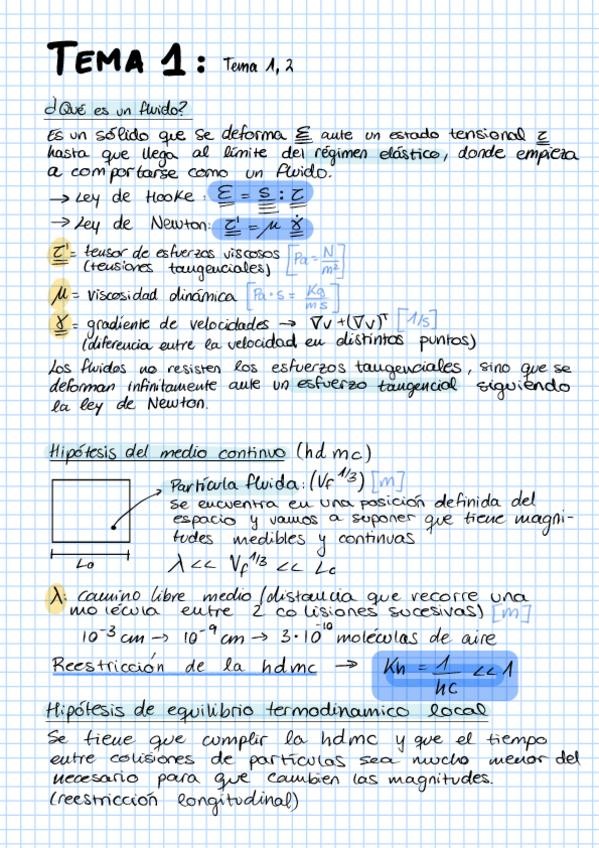 TEMA 1: Tema 1, 2
¿Qué es un fluido?
Es un sólido que se deforma ε ante un estado tensional τ
hasta que llega al límite del régimen elástico, donde empieza
a comportarse como un fluido.
→ Ley de Hooke: ε = s : τ
→ Ley de Newton: τ' = μ γ̇
τ' = tensor de esfuerzos viscosos [Pa = N/m²]
(tensiones tangenciales)
μ = viscosidad dinámica [Pa·s = Kg/ms]
γ̇ = gradiente de velocidades → ∇v + (∇v)ᵀ [1/s]
(diferencia entre la velocidad en distintos puntos)
Los fluidos no resisten los esfuerzos tangenciales, sino que se
deforman infinitamente ante un esfuerzo tangencial siguiendo
la ley de Newton.
Hipótesis del medio continuo (hdmc)
Partícula fluida: (Vf^1/3) [m]
se encuentra en una posición definida del
espacio y vamos a suponer que tiene magni-
tudes medibles y continuas
Lo
λ << Vf^1/3 << Lc
λ: camino libre medio (distancia que recorre una
molécula entre 2 colisiones sucesivas) [m]
10⁻³ cm → 10⁻⁹ cm → 3·10⁻¹⁰ moléculas de aire
Reestricción de la hdmc → Kn = 1/hc << 1
Hipótesis de equilibrio termodinamico local
Se tiene que cumplir la hdmc y que el tiempo
entre colisiones de partículas sea mucho menor del
necesario para que cambien las magnitudes.
(reestricción longitudinal)